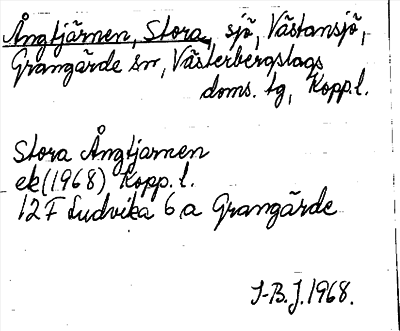 Ångtjärnen, Stora, sjö, Västansjö,
Grangärde sn, Västerbergslags
doms. tg, Kopp.l.
Stora Ångtjarnen
ek(1968) Kopp.l.
12F Ludvika 6a Grangärde
I-B.J.1968.